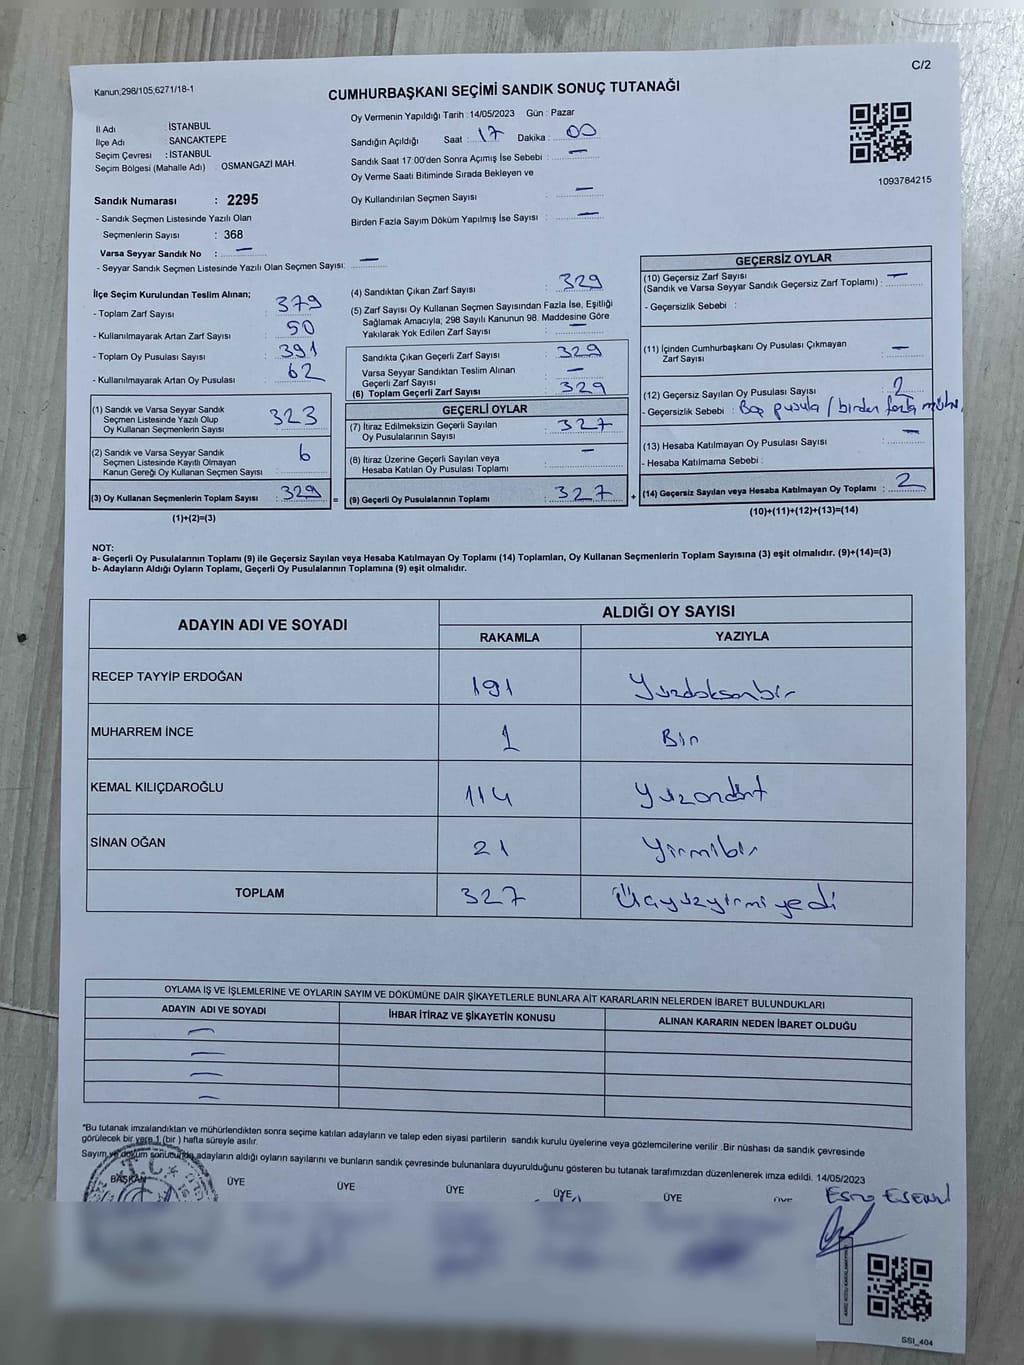 C/2
Kanun;298/105;6271/18-1
CUMHURBAŞKANI SEÇİMİ SANDIK SONUÇ TUTANAĞI
İl Adı : İSTANBUL
İlçe Adı : SANCAKTEPE
Seçim Çevresi : İSTANBUL
Seçim Bölgesi (Mahalle Adı) : OSMANGAZİ MAH.
Sandık Numarası : 2295
- Sandık Seçmen Listesinde Yazılı Olan
Seçmenlerin Sayısı : 368
Varsa Seyyar Sandık No : —
- Seyyar Sandık Seçmen Listesinde Yazılı Olan Seçmen Sayısı: —
Oy Vermenin Yapıldığı Tarih : 14/05/2023 Gün : Pazar
Sandığın Açıldığı Saat : 17 Dakika : 00
Sandık Saat 17:00'den Sonra Açılmış İse Sebebi : —
Oy Verme Saati Bitiminde Sırada Bekleyen ve
Oy Kullandırılan Seçmen Sayısı : —
Birden Fazla Sayım Döküm Yapılmış İse Sayısı : —
1093784215
İlçe Seçim Kurulundan Teslim Alınan;
- Toplam Zarf Sayısı : 379
- Kullanılmayarak Artan Zarf Sayısı : 50
- Toplam Oy Pusulası Sayısı : 391
- Kullanılmayarak Artan Oy Pusulası : 62
(1) Sandık ve Varsa Seyyar Sandık
Seçmen Listesinde Yazılı Olup
Oy Kullanan Seçmenlerin Sayısı : 323
(2) Sandık ve Varsa Seyyar Sandık
Seçmen Listesinde Kayıtlı Olmayan
Kanun Gereği Oy Kullanan Seçmen Sayısı : 6
(3) Oy Kullanan Seçmenlerin Toplam Sayısı : 329 =
(1)+(2)=(3)
(4) Sandıktan Çıkan Zarf Sayısı : 329
(5) Zarf Sayısı Oy Kullanan Seçmen Sayısından Fazla İse, Eşitliği
Sağlamak Amacıyla; 298 Sayılı Kanunun 98. Maddesine Göre
Yakılarak Yok Edilen Zarf Sayısı : —
Sandıkta Çıkan Geçerli Zarf Sayısı : 329
Varsa Seyyar Sandıktan Teslim Alınan
Geçerli Zarf Sayısı : —
(6) Toplam Geçerli Zarf Sayısı : 329
GEÇERLİ OYLAR
(7) İtiraz Edilmeksizin Geçerli Sayılan
Oy Pusulalarının Sayısı : 327
(8) İtiraz Üzerine Geçerli Sayılan veya
Hesaba Katılan Oy Pusulası Toplamı : —
(9) Geçerli Oy Pusulalarının Toplamı : 327 +
GEÇERSİZ OYLAR
(10) Geçersiz Zarf Sayısı
(Sandık ve Varsa Seyyar Sandık Geçersiz Zarf Toplamı) : —
- Geçersizlik Sebebi :
(11) İçinden Cumhurbaşkanı Oy Pusulası Çıkmayan
Zarf Sayısı : —
(12) Geçersiz Sayılan Oy Pusulası Sayısı : 2
- Geçersizlik Sebebi : Boş pusula / birden fazla mühür
(13) Hesaba Katılmayan Oy Pusulası Sayısı : —
- Hesaba Katılmama Sebebi :
(14) Geçersiz Sayılan veya Hesaba Katılmayan Oy Toplamı : 2
(10)+(11)+(12)+(13)=(14)
NOT:
a- Geçerli Oy Pusulalarının Toplamı (9) ile Geçersiz Sayılan veya Hesaba Katılmayan Oy Toplamı (14) Toplamları, Oy Kullanan Seçmenlerin Toplam Sayısına (3) eşit olmalıdır. (9)+(14)=(3)
b- Adayların Aldığı Oyların Toplamı, Geçerli Oy Pusulalarının Toplamına (9) eşit olmalıdır.
ADAYIN ADI VE SOYADI
ALDIĞI OY SAYISI
RAKAMLA YAZIYLA
RECEP TAYYİP ERDOĞAN 191 Yüzdoksanbir
MUHARREM İNCE 1 Bir
KEMAL KILIÇDAROĞLU 114 Yüzondört
SİNAN OĞAN 21 Yirmibir
TOPLAM 327 Üçyüzyirmiyedi
OYLAMA İŞ VE İŞLEMLERİNE VE OYLARIN SAYIM VE DÖKÜMÜNE DAİR ŞİKAYETLERLE BUNLARA AİT KARARLARIN NELERDEN İBARET BULUNDUKLARI
ADAYIN ADI VE SOYADI İHBAR İTİRAZ VE ŞİKAYETİN KONUSU ALINAN KARARIN NEDEN İBARET OLDUĞU
—
—
—
—
*Bu tutanak imzalandıktan ve mühürlendikten sonra seçime katılan adayların ve talep eden siyasi partilerin sandık kurulu üyelerine veya gözlemcilerine verilir .Bir nüshası da sandık çevresinde
görülecek bir yere 1 (bir ) hafta süreyle asılır.
Sayım ve döküm sonucunda adayların aldığı oyların sayılarını ve bunların sandık çevresinde bulunanlara duyurulduğunu gösteren bu tutanak tarafımızdan düzenlenerek imza edildi. 14/05/2023
BAŞKAN ÜYE ÜYE ÜYE ÜYE ÜYE ÜYE
T.C.
SSI_404